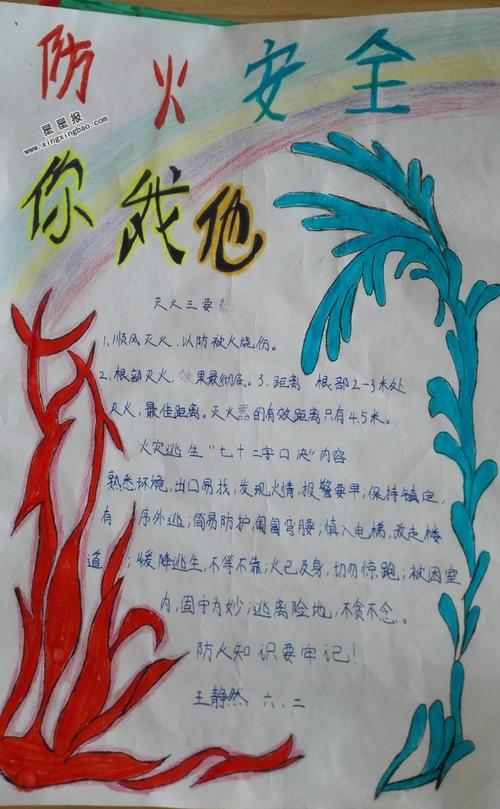 防火安全
星星报
www.xingxingbao.com
你我他
灭火三要素
1、顺风灭火,以防被火烧伤。
2、根部灭火,效果最彻底。3、距离 根部2-3米处
灭火,最佳距离。灭火器的有效距离只有4.5米。
火灾逃生"七十二字口决"内容
熟悉环境,出口易找;发现火情,报警要早;保持镇定,
有 序外逃;简易防护 弯腰;慎入电梯,改走楼
道 ;缓降逃生,不等不靠;火已及身,切勿惊跑;被困室
内,固守为妙;逃离险地,不贪不念。
防火知识要牢记!
王静然、六、二